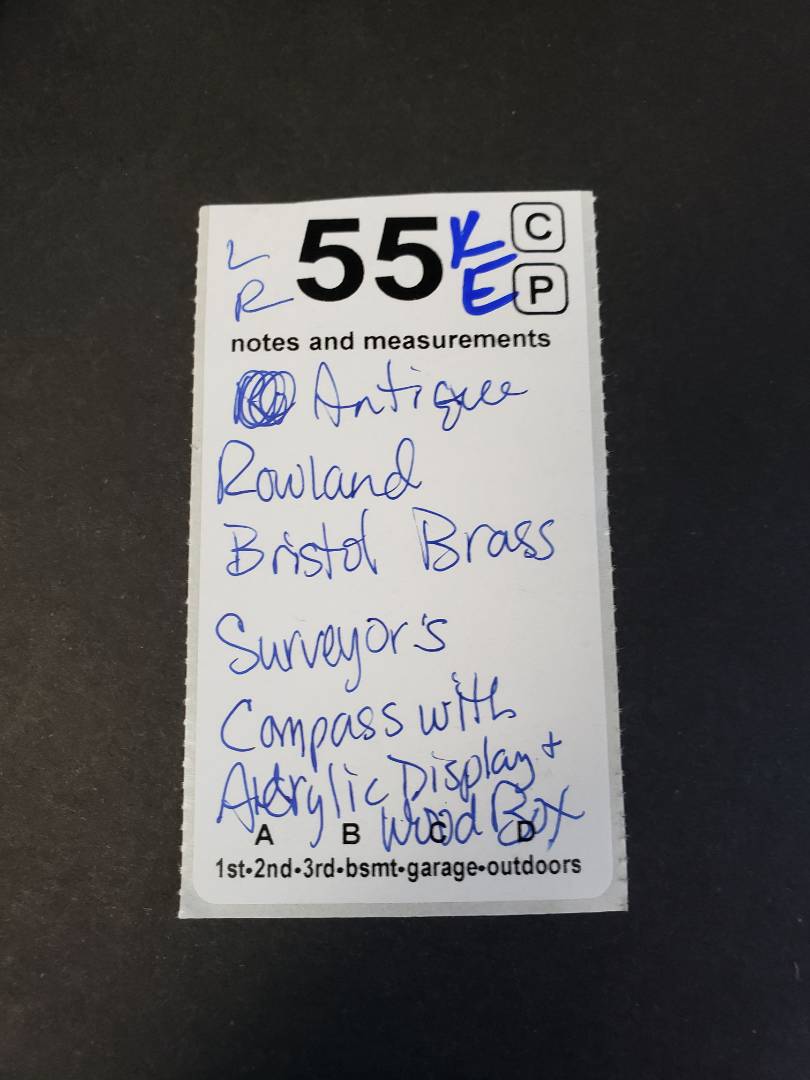 L 55 K C
R E P
notes and measurements
Antique
Rowland
Bristol Brass
Surveyor's
Compass with
Acrylic Display +
Wood Box
A B C D
1st•2nd•3rd•bsmt•garage•outdoors